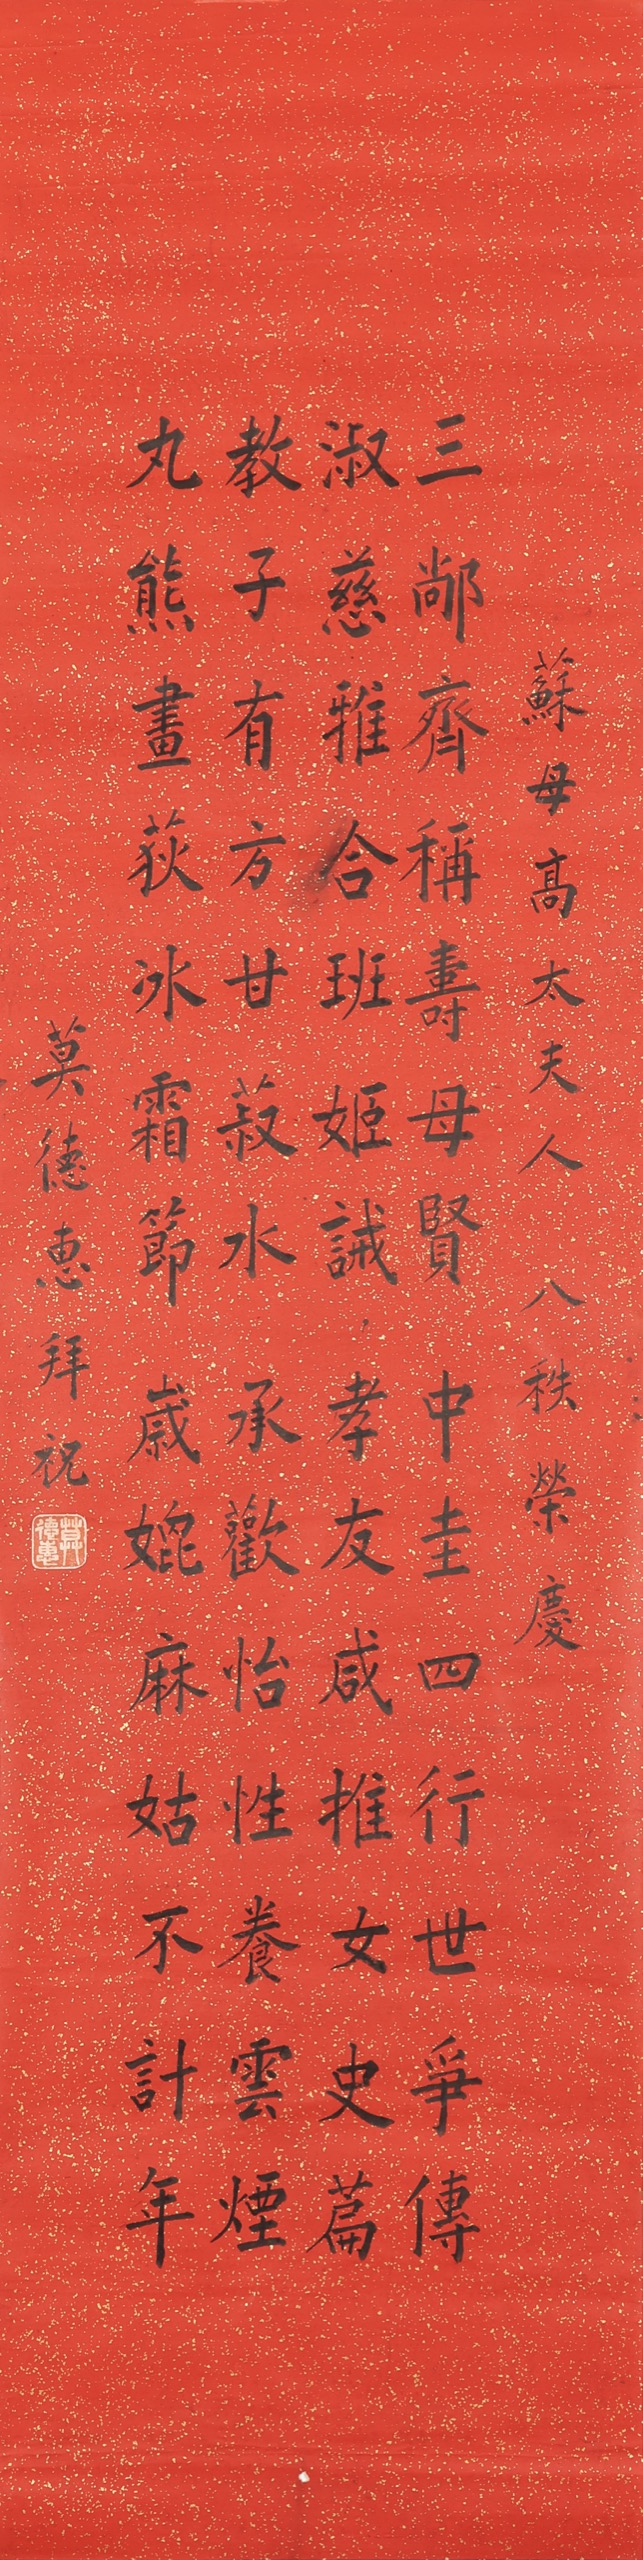 蘇母高太夫人 八秩榮慶
三鄗齊稱壽母賢 中圭四行世爭傳
淑慈雅合班姬誡，孝友咸推女史篇
教子有方甘菽水 承歡怡性養雲煙
丸熊畫荻冰霜節 歲媲麻姑不計年
莫德惠拜祝
莫德惠